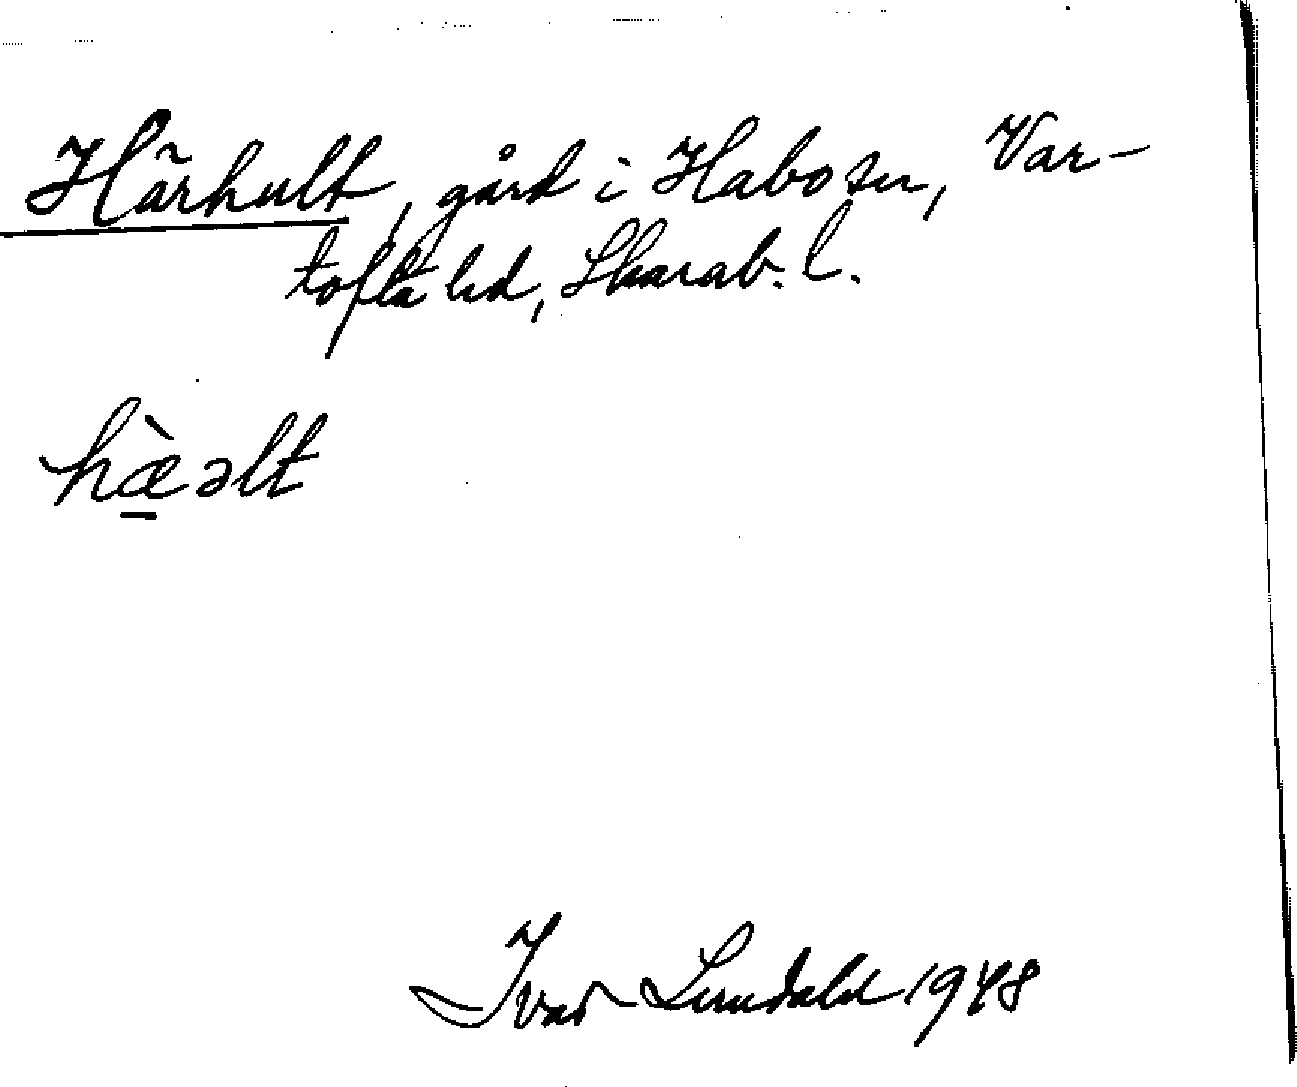 Härhult, gård i Habo sn, Var-
tofta hd, Skarab. l.
hæ̠̀əlt
Ivar Lundahl 1948